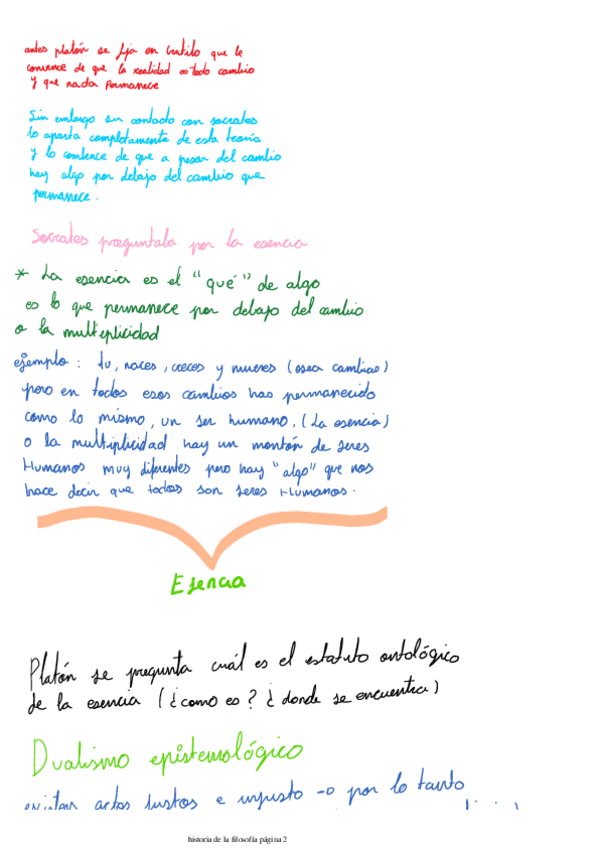 antes platón se fija en Cratilo que le
convence de que la realidad es todo cambio
y que nada permanece
Sin embargo su contado con socrates
lo aparta completamente de esta teoría
y lo convence de que a pesar del cambio
hay algo por debajo del cambio que
permanece.
Socrates preguntaba por la esencia
* La esencia es el "qué" de algo
es lo que permanece por debajo del cambio
o la multiplicidad
ejemplo: tu, naces, creces y mueres (osea cambias)
pero en todos esos cambios has permanecido
como lo mismo, un ser humano. (La esencia)
o la multiplicidad hay un montón de seres
Humanos muy diferentes pero hay "algo" que nos
hace decir que todos son seres Humanos.
Esencia
Platón se pregunta cuál es el estatuto ontológico
de la esencia (¿como es? ¿donde se encuentra)
Dualismo epistemológico
existen actos justos e injusto -o por lo tanto
historia de la filosofía página 2